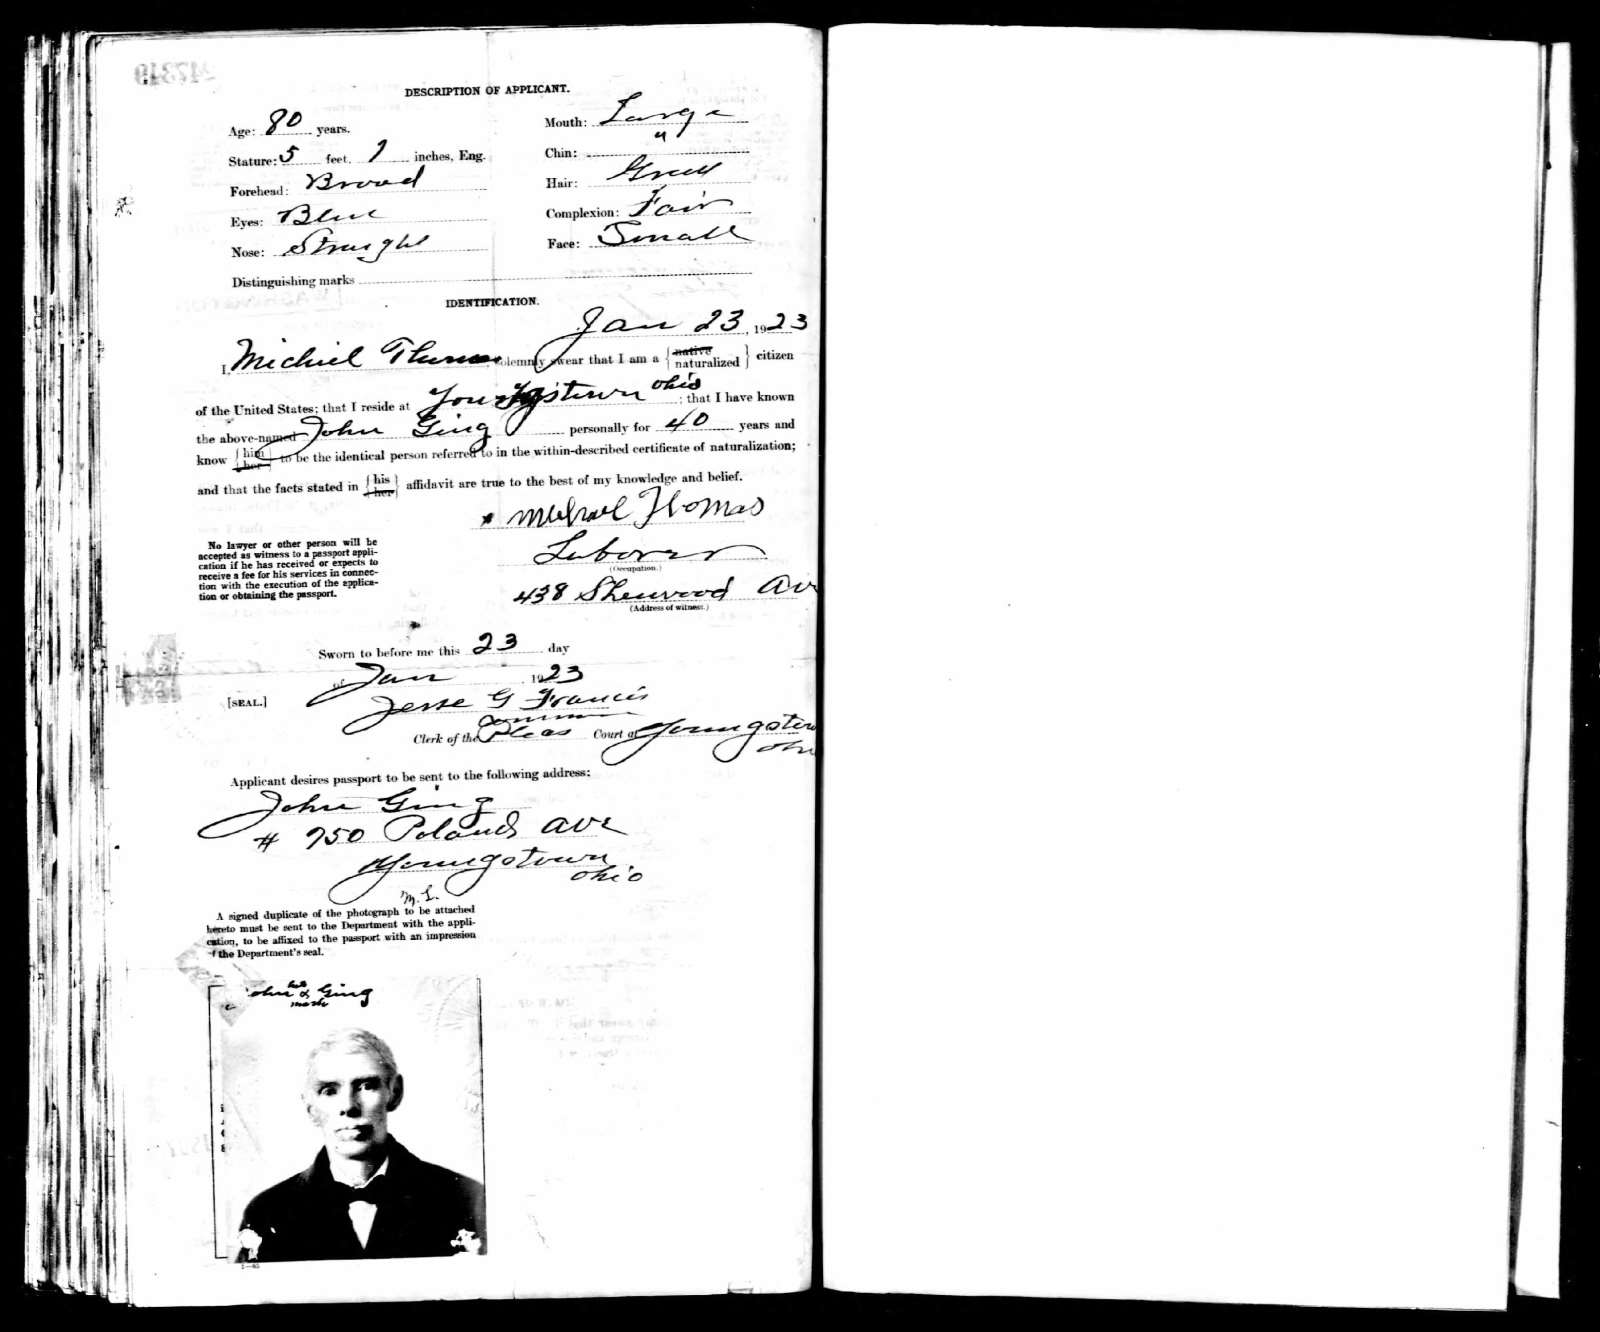 DESCRIPTION OF APPLICANT.
Age: 80 years. Mouth: Large
Stature: 5 feet, 7 inches, Eng. Chin: "
Forehead: Broad Hair: Grey
Eyes: Blue Complexion: Fair
Nose: Straight Face: Small
Distinguishing marks
IDENTIFICATION.
Jan 23, 1923
I, Michiel Thomas, solemnly swear that I am a {native naturalized} citizen
of the United States; that I reside at Youngstown Ohio; that I have known
the above-named John Ging personally for 40 years and
know {him her} to be the identical person referred to in the within-described certificate of naturalization;
and that the facts stated in {his her} affidavit are true to the best of my knowledge and belief.
x Michael Thomas
No lawyer or other person will be
accepted as witness to a passport appli-
cation if he has received or expects to
receive a fee for his services in connec-
tion with the execution of the applica-
tion or obtaining the passport.
Laborer
(Occupation.)
438 Sherwood Av
(Address of witness.)
Sworn to before me this 23 day
of Jan, 1923
[SEAL.] Jesse G Francis
Clerk of the Common Pleas Court at Youngstown
Ohio
Applicant desires passport to be sent to the following address:
John Ging
# 750 Poland Ave
Youngstown
Ohio
M. L.
A signed duplicate of the photograph to be attached
hereto must be sent to the Department with the appli-
cation, to be affixed to the passport with an impression
of the Department's seal.
John his x mark Ging